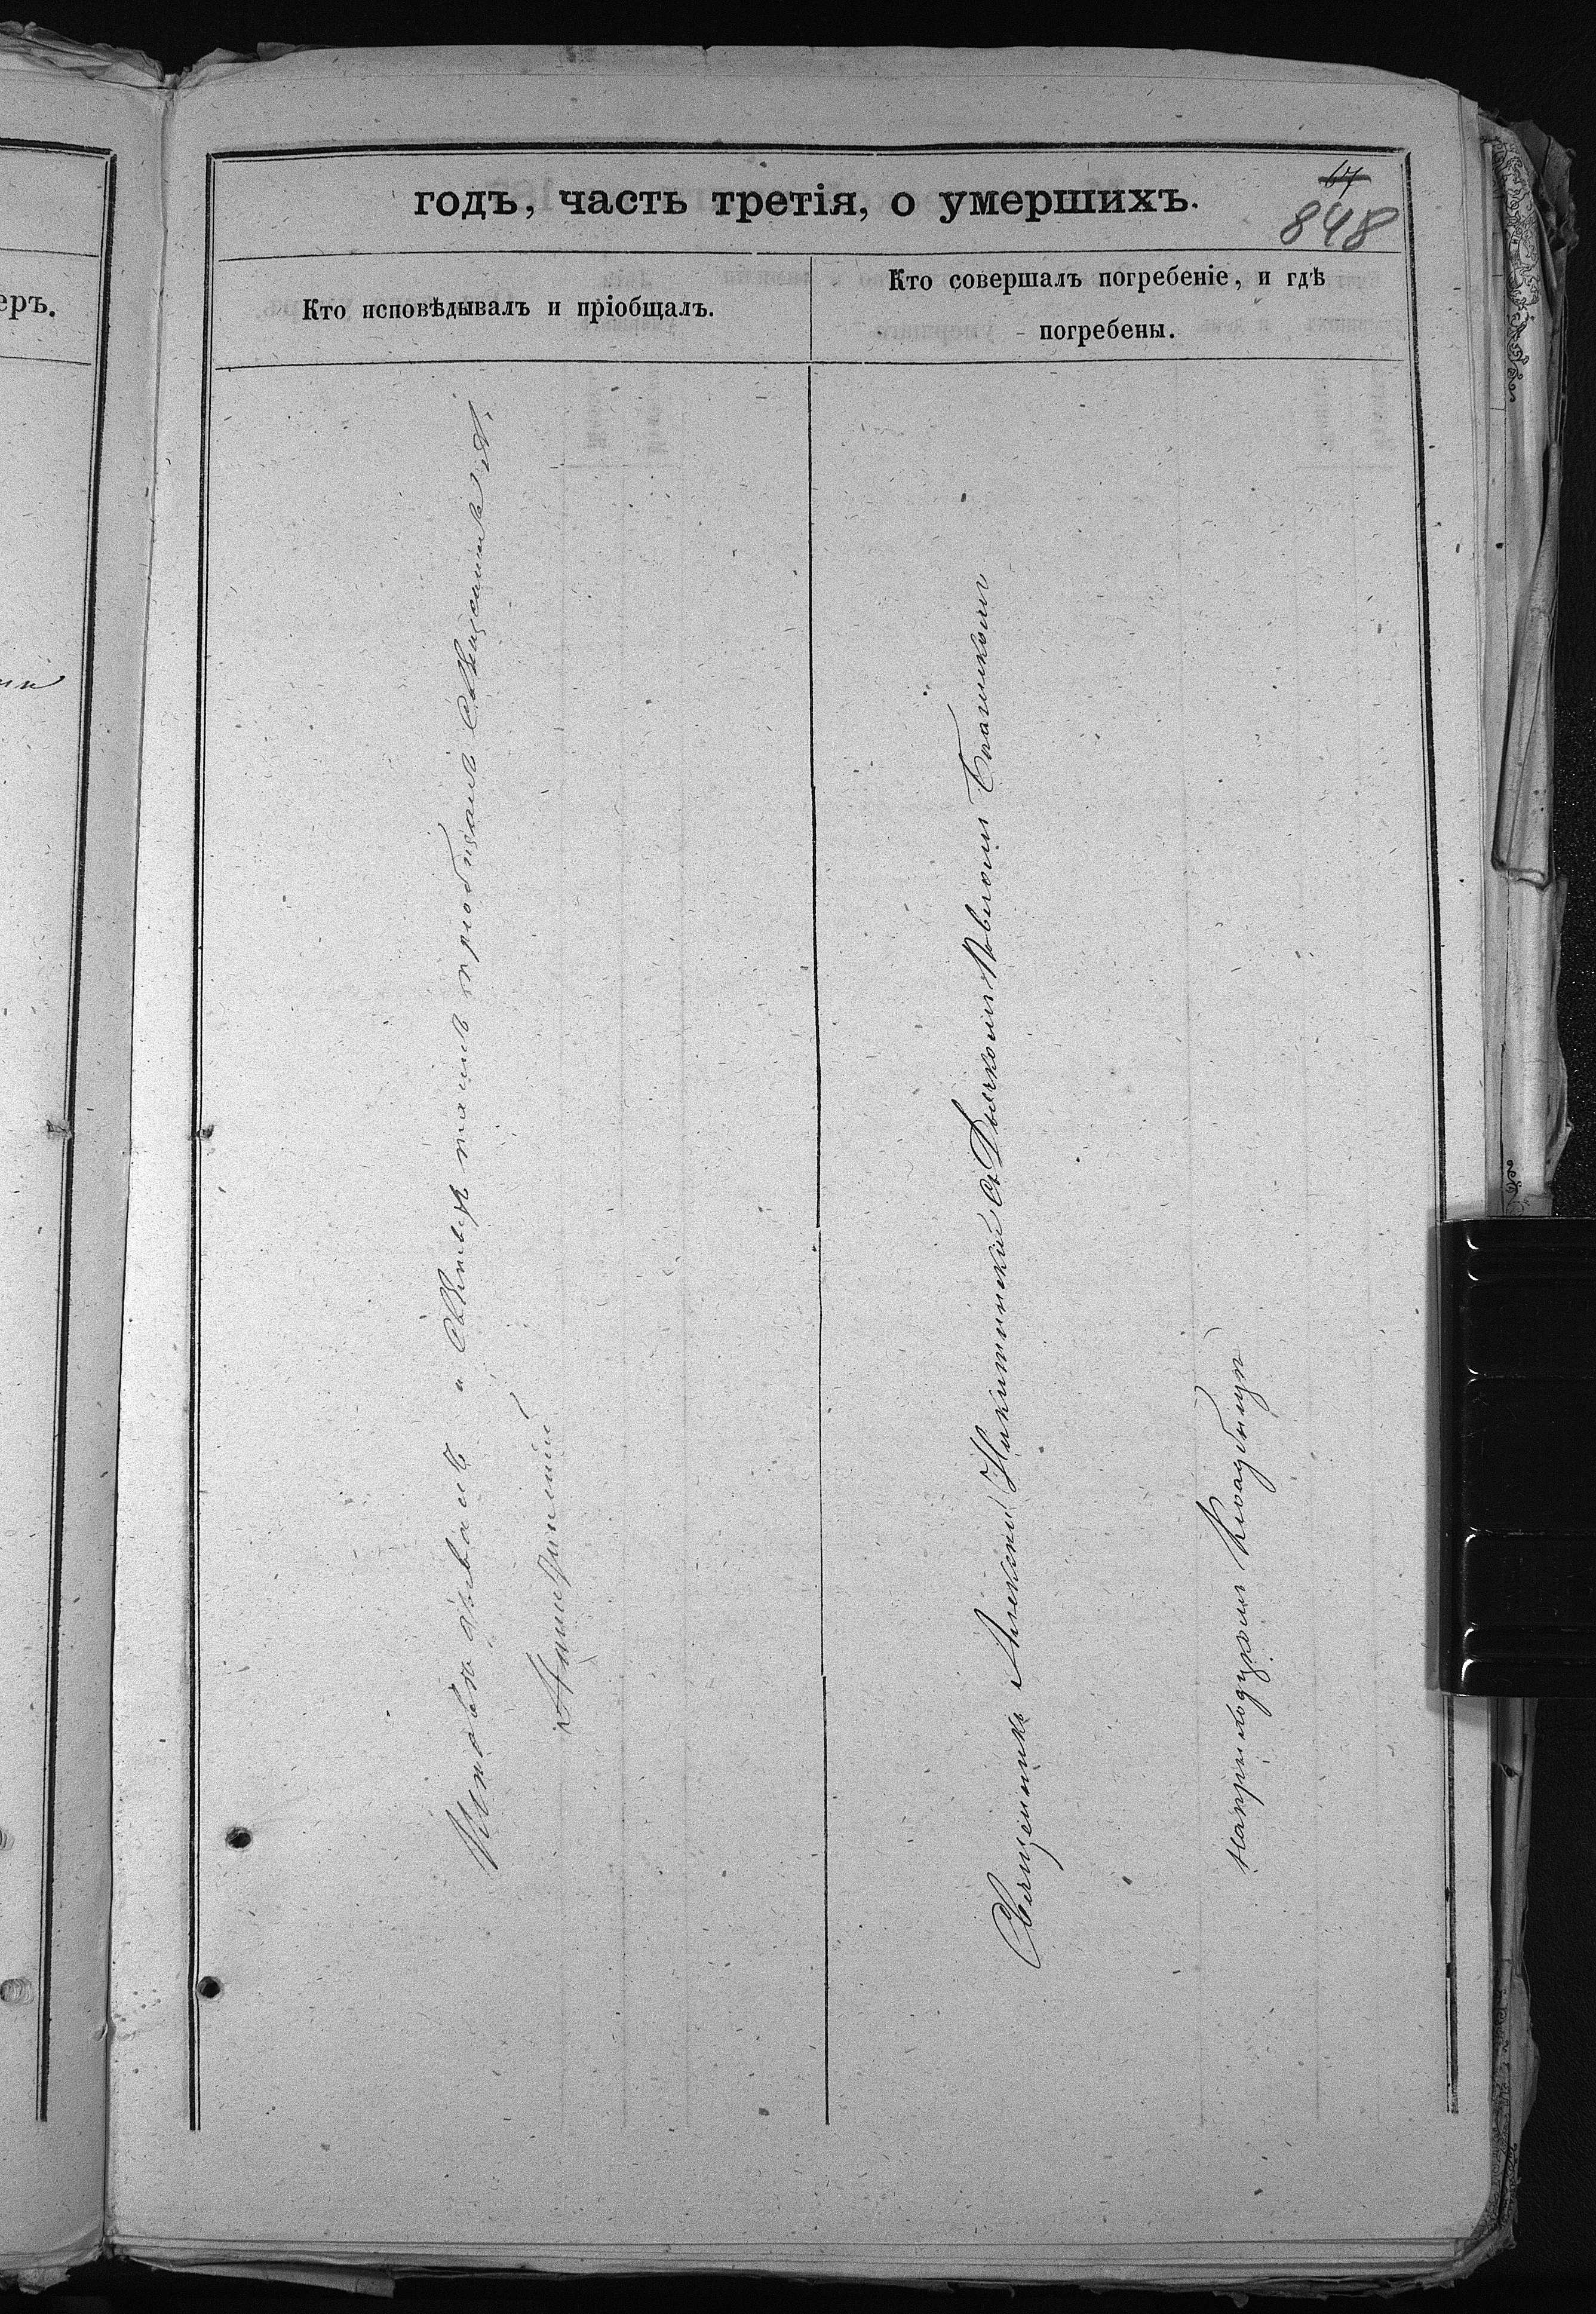 годъ, часть третія, о умершихъ.
67
848
Кто исповѣдывалъ и пріобщалъ.
Кто совершалъ погребеніе, и гдѣ
погребены.
еръ.
Исповѣдывалъ и Святыхъ таинъ пріобщалъ Священникъ А.
Священникъ Алексѣй Никитинскій съ Дьячкомъ Яковомъ
на приходскомъ кладбищѣ